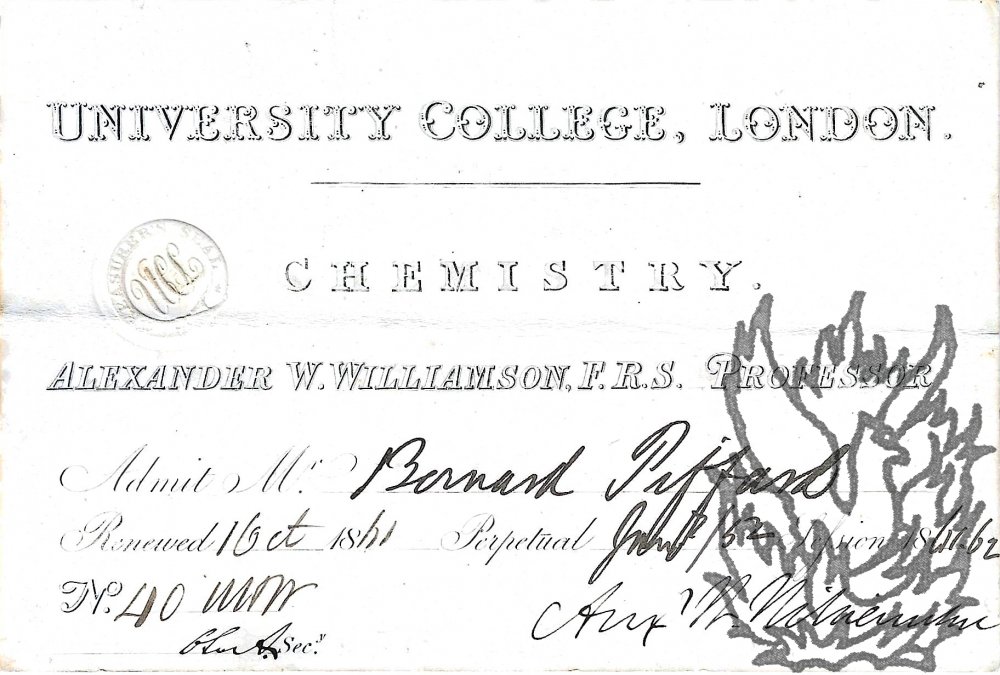 UNIVERSITY COLLEGE, LONDON.
TREASURER'S SEAL
UCL
CHEMISTRY.
ALEXANDER W. WILLIAMSON, F.R.S. PROFESSOR
Admit Mr. Bernard Piffard
Renewed 1 Oct 1861 Perpetual Jany/62 Session 1861-62
No. 40
Alexr W. Williamson
Secy.